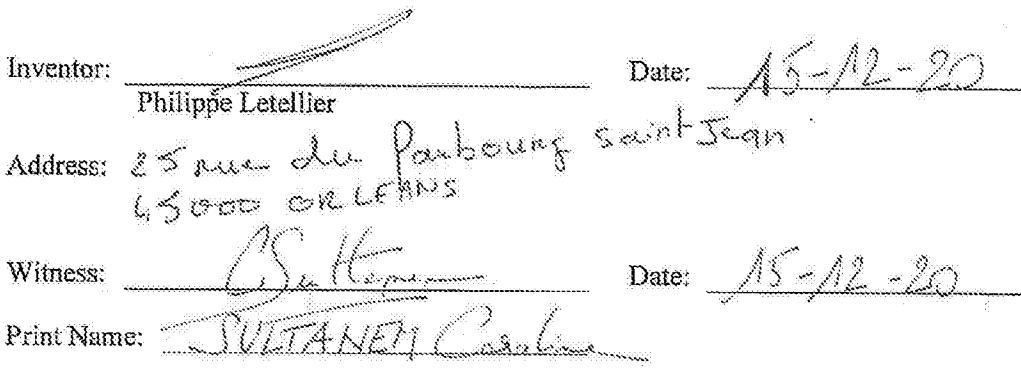 Inventor: Date: 15-12-20
Philippe Letellier
Address: 25 rue du Faubourg saint Jean
45000 ORLEANS
Witness: Date: 15-12-20
Print Name: SULTANEM Caroline